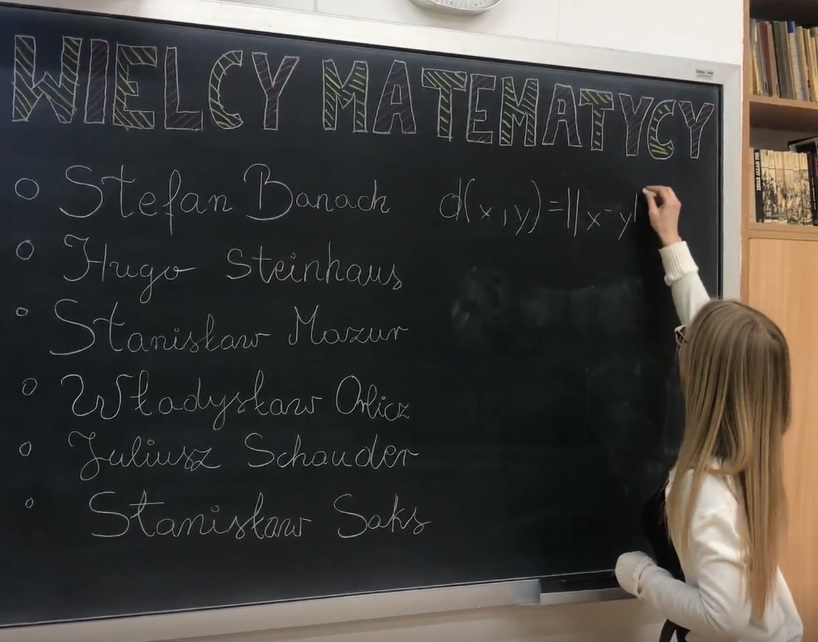 WIELCY MATEMATYCY
Stefan Banach d(x,y)=||x-y|
Hugo Steinhaus
Stanisław Mazur
Władysław Orlicz
Juliusz Schauder
Stanisław Saks